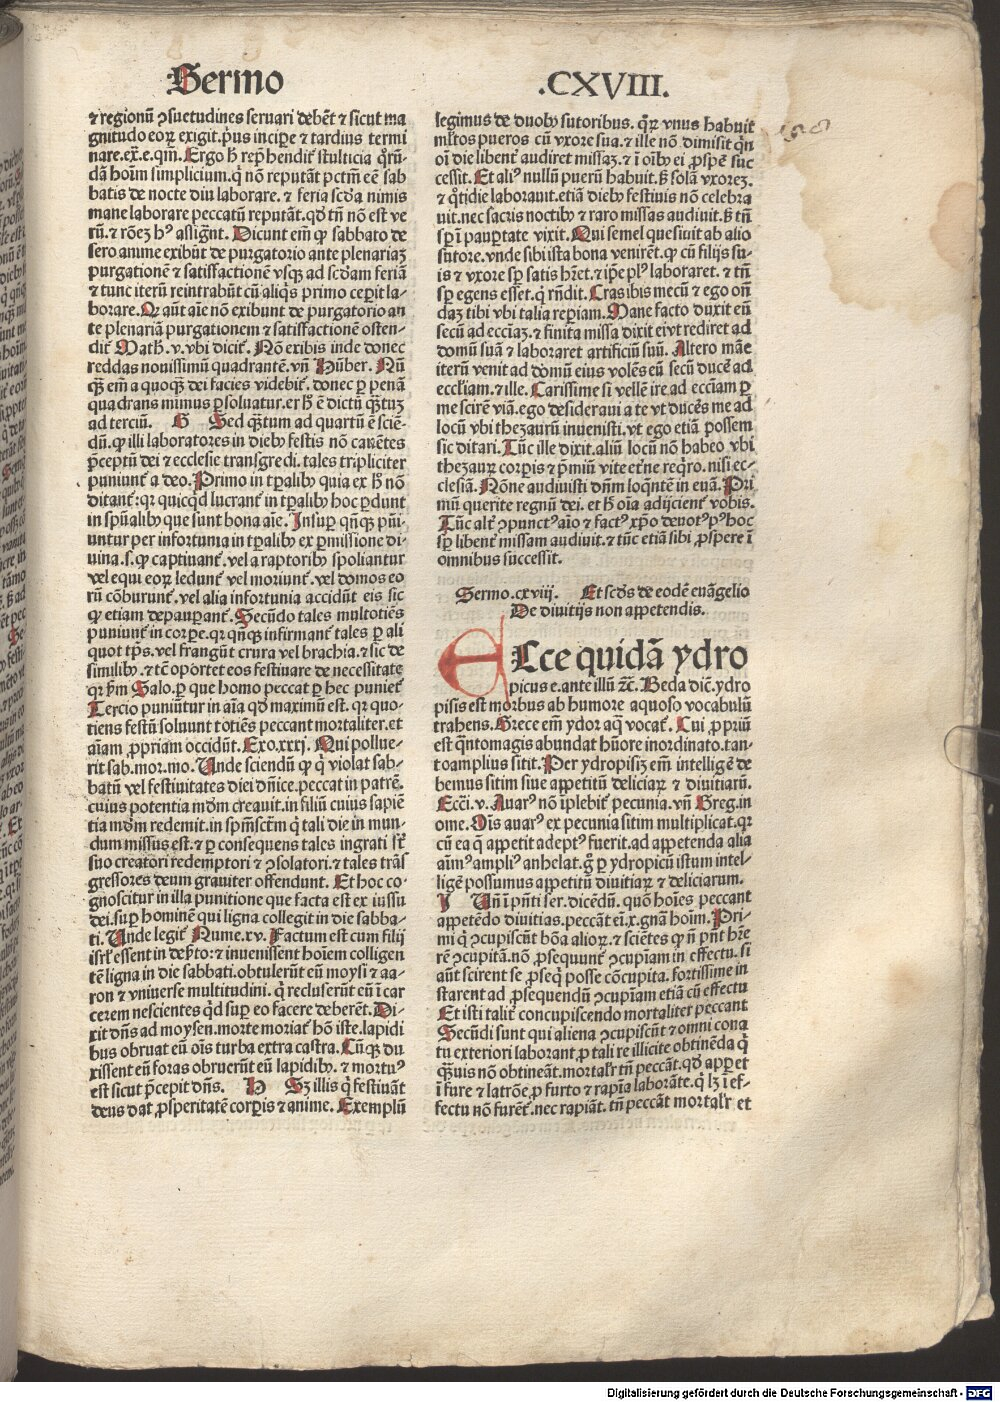 Sermo .CXVIII.
⁊ regionū ↄsuetudines seruari debēt ⁊ sicut ma
gnitudo eoꝝ exigit. p̄us incipe ⁊ tardius termi
nare. ex̄. e. qm̄. Ergo h̄ rep̄hendit᷑ stulticia q̄rū-
dā hoīm simplicium. q̇ nō reputāt pctm̄ eē sab
batis de nocte diu laborare. ⁊ feria scd̄a nimis
mane laborare peccatū reputāt. qd̄ tn̄ nō est ve
rū. ⁊ rōeꝫ hꝰ assigt. Dicunt em̄ ꝙ sabbato de
sero anime exibūt de purgatorio ante plenariaꝫ
purgationē ⁊ satisfactionē vsqꝫ ad scd̄am feriā
⁊ tunc iterū reintrabūt cū aliq̇s primo ceperit la-
borare. Qꝛ aūt aīe nō exibunt de purgatorio an
te plenariā purgationem ⁊ satisfactionē osten-
dit᷑ Math̄. v. vbi dicit᷑. Nō exibis inde donec
reddas nouissimū quadrantē. vn̄ Hūber. Nū
qꝫ em̄ a quoqꝫ dei facies videbit᷑. donec ꝑ penā
quadrans minus ꝑsoluatur. et h̄ ē dictū qꝫtuꝫ
ad terciū. G Sed qꝫtum ad quartū ē sciē-
dū. ꝙ illi laboratores in dieb𝑦 festis nō cauētes
p̄ceptū dei ⁊ ecclesie transgredi. tales tripliciter
puniunt᷑ a deo. Primo in tꝑalib𝑦 quia ex h̄ nō
ditant᷑: qꝛ quicqd̄ lucrant᷑ in tꝑalib𝑦 hoc ꝑdunt
in spūalib𝑦 que sunt bona aīe. Insuꝑ qn̄qꝫ pūi-
untur per infortunia in tꝑalib𝑦 ex ꝑmissione di-
uina. s. ꝙ captiuant᷑. vel a raptorib𝑦 spoliantur
vel equi eoꝝ ledunt᷑ vel moriunt᷑. vel domos eo
rū cōburunt᷑. vel alia infortunia accidūt eis sic
ꝙ etiam depauꝑant᷑. Secūndo tales multotiēs
puniunt᷑ in corꝑe. qꝛ qn̄qꝫ infirmant᷑ tales ꝑ ali
quot tꝑs. vel frangūt crura vel brachia. ⁊ sic de
similib𝑦. ⁊ tc̄ oportet eos festiuare de necessitate
qꝛ ẜm Salo. ꝑ que homo peccat ꝑ hec puniet᷑
Tercio puniūtur in aīa qd̄ maximū est. qꝛ quo-
tiens festū soluunt totiēs peccant mortaliter. et
aīam ꝓpriam occidūt. Exo. xxxj. Qui pollue-
rit sab. mor. mo. Unde sciendū ꝙ q̇ violat sab-
batū vel festiuitates diei dn̄ice. peccat in patrē.
cuius potentia mūdm creauit. in filiū cuius sapiē
tia mūdm redemit. in spm̄sctm̄ q̇ tali die in mun-
dum missus est. ⁊ ꝑ consequens tales ingrati sr̄t
suo creatori redemptori ⁊ ↄsolatori. ⁊ tales trās
gressores deum grauiter offendunt. Et hoc co-
gnoscitur in illa punitione que facta est ex iussu
dei. suꝑ hominē qui ligna collegit in die sabba-
ti. Unde legit᷑ Nume. xv. Factum est cum filij
isrl̄ essent in deẜto: ⁊ inuenissent hoīem colligen
tē ligna in die sabbati. obtulerūt eū moysi ⁊ aa-
ron ⁊ vniuerse multitudini. q̇ recluserūt eū ī car
cerem nescientes qd̄ suꝑ eo facere deberēt. Di-
xit dn̄s ad moysen. morte moriat᷑ hō iste. lapidi
bus obruat eū oīs turba extra castra. Cūqꝫ du
xissent eū foras obruerūt eū lapidib𝑦. ⁊ mortuꝰ
est sicut p̄cepit dn̄s. H Sꝫ illis q̇ festiuāt
deus dat ꝓsperitatē corꝑis ⁊ anime. Exemplū
legimus de duob𝑦 sutoribus. qꝝ vnus habuit
ml̄tos pueros cū vxore sua. ⁊ ille nō dimisit q̇n
oī die libent᷑ audiret missaꝫ. ⁊ ī oīb𝑦 ei ꝓspē suc
cessit. Et aliꝰ nullū puerū habuit. ß solā vxoreꝫ.
⁊ q̊tidie laborauit. etiā dieb𝑦 festiuis nō celebra
uit. nec sacris noctib𝑦 ⁊ raro missas audiuit. ß tn̄
sꝑ ī pauꝑtate vixit. Qui semel quesiuit ab alio
sutore. vnde sibi ista bona venirēt. ꝙ cū filijs su-
is ⁊ vxore sꝑ satis hr̄et. ⁊ ip̄e plꝰ laboraret. ⁊ tn̄
sꝑ egens esset. q̇ rn̄dit. Cras ibis mecū ⁊ ego on̄
daꝫ tibi vbi talia reperiam. Mane facto duxit eū
secū ad eccīaꝫ. ⁊ finita missa dixit ei vt rediret ad
domū suā ⁊ laboraret artificiū suū. Altero māe
iterū venit ad domū eius volēs eū secū ducē ad
eccliam. ⁊ ille. Carissime si vellē ire ad eccīam ꝑ
me scirem viā. ego desideraui a te vt ducēs me ad
locū vbi thezaurū inuenisti. vt ego etiā possem
sic ditari. Tūc ille dixit. aliū locū nō habeo vbi
thezauꝝ corꝑis ⁊ p̄miū vite et̄ne req̄ro. nisi ec-
clesiā. Nōne audiuisti dn̄m loq̄ntē in euā. Pri
mū querite regnū dei. et h̄ oīa adijcient᷑ vobis.
Tūc alt᷑ ↄpunctꝰ aīo ⁊ factꝰ xp̄o deuotꝰ pꝰ hoc
sꝑ libent᷑ missam audiuit. ⁊ tūc etiā sibi ꝓspere ī
omnibus successit.
Sermo. cxviij. Et scd̄s de eodē euāgelio
De diuitijs non appetendis.
ECce quidā ydro
picus e. ante illū ⁊c̄. Beda dic̄. ydro
pisis est morbus ab humore aquoso vocabulū
trahens. Grece em̄ ydor aq̄ vocat᷑. Cui ꝓpriū
est qn̄tomagis abundat hūore inordinato. tan-
toamplius sitit. Per ydropisiꝫ em̄ intelligē de
bemus sitim siue appetitū deliciaꝝ ⁊ diuitiarū.
Ecc̄i. v. Auarꝰ nō īplebit᷑ pecunia. vn̄ Greg. in
ome. Oīs auarꝰ ex pecunia sitim multiplicat. qꝛ
cū ea q̄ appetit adeptꝰ fuerit. ad appetenda alia
aīmꝰ ampliꝰ anhelat. gͦ ꝑ ydropicū istum intel-
ligē possumus appetitū diuitiaꝝ ⁊ deliciarum.
J Un̄ ī pn̄ti ser. dicēdū. quō hoīes peccant
appetēdo diuitias. peccāt em̄. x. gn̄a hoīm. Pri-
mi q̇ ↄcupiscūt bōa alioꝝ. ⁊ sciētes ꝙ nō pn̄t hr̄e
rē ↄcupitā. nō ꝓsequunt᷑ ↄcupīam in effectu. si
aūt scirent se ꝓseq̇ posse cōcupita. fortissime in
starent ad ꝓsequendū ↄcupīam etiā cū effectu
Et isti talit᷑ concupiscendo mortaliter peccant
Secūdi sunt qui aliena ↄcupiscūt ⁊ omni cona
tu exteriori laborant. ꝓ tali re illicite obtinēda q̇
qꝫuis nō obtineāt. mortalr̄ tn̄ peccāt. qd̄ apꝑ et
ī fure ⁊ latrōe. ꝓ furto ⁊ rapīa laborāte. q̇ lꝫ ī ef-
fectu nō furēt᷑. nec rapiāt. tn̄ peccāt mortalr̄ et
Digitalisierung gefördert durch die Deutsche Forschungsgemeinschaft - DFG